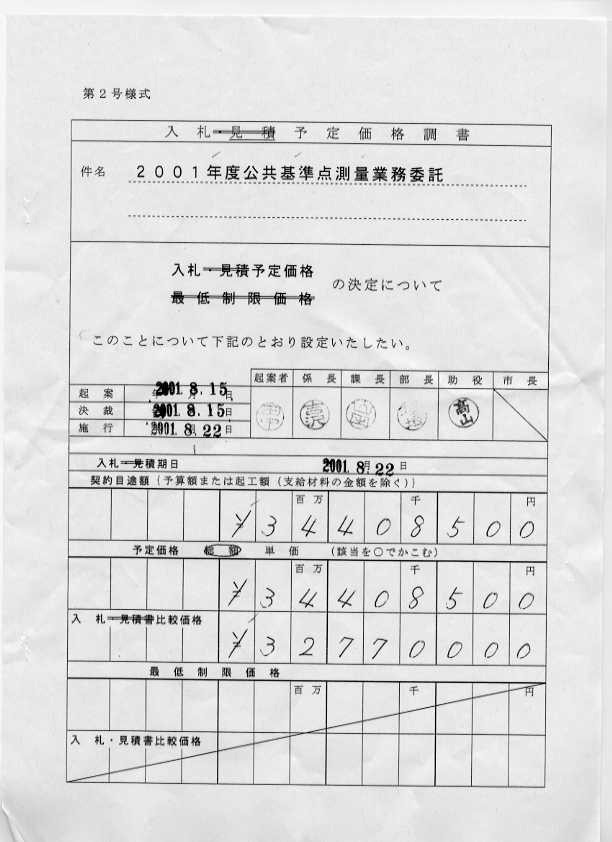 第２号様式
入札・見積予定価格調書
件名 ２００１年度公共基準点測量業務委託
入札・見積予定価格
最低制限価格
の決定について
このことについて下記のとおり設定いたしたい。
起案者 係長 課長 部長 助役 市長
起案 2001. 8. 15日
決裁 2001. 8. 15日
施行 2001. 8. 22日
高山
入札・見積期日 2001. 8. 22日
契約目途額（予算額または起工額（支給材料の金額を除く））
百万 千 円
¥ 3 4 4 0 8 5 0 0
予定価格 総額 単価 （該当を○でかこむ）
百万 千 円
¥ 3 4 4 0 8 5 0 0
入札・見積書比較価格
¥ 3 2 7 7 0 0 0 0
最低制限価格
百万 千 円
入札・見積書比較価格